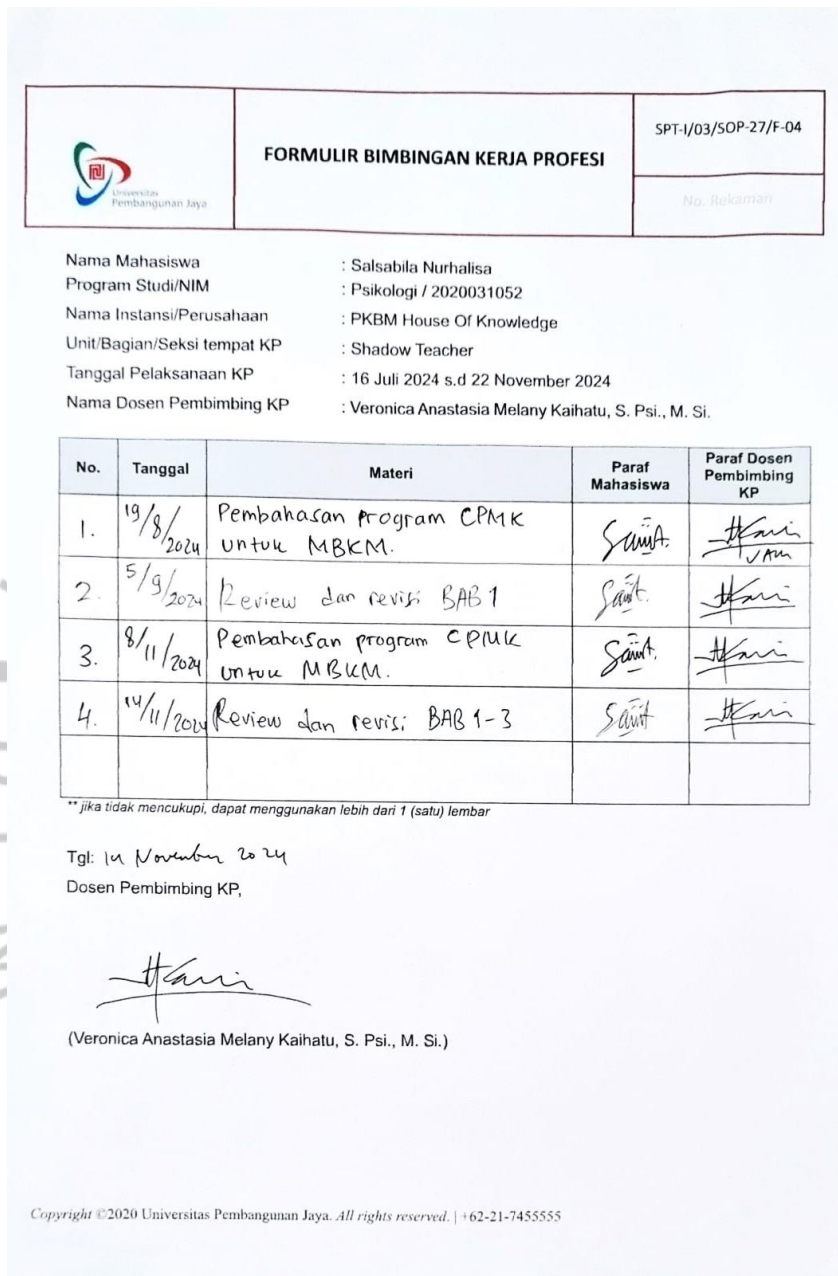 Universitas
Pembangunan Jaya
FORMULIR BIMBINGAN KERJA PROFESI
SPT-I/03/SOP-27/F-04
No. Rekaman
Nama Mahasiswa : Salsabila Nurhalisa
Program Studi/NIM : Psikologi / 2020031052
Nama Instansi/Perusahaan : PKBM House Of Knowledge
Unit/Bagian/Seksi tempat KP : Shadow Teacher
Tanggal Pelaksanaan KP : 16 Juli 2024 s.d 22 November 2024
Nama Dosen Pembimbing KP : Veronica Anastasia Melany Kaihatu, S. Psi., M. Si.
No. Tanggal Materi Paraf Mahasiswa Paraf Dosen Pembimbing KP
1. 19/8/2024 Pembahasan program CPMK
untuk MBKM.
VAM
2. 5/9/2024 Review dan revisi BAB 1
3. 8/11/2024 Pembahasan program CPMK
untuk MBKM.
4. 14/11/2024 Review dan revisi BAB 1-3
** jika tidak mencukupi, dapat menggunakan lebih dari 1 (satu) lembar
Tgl: 14 November 2024
Dosen Pembimbing KP,
(Veronica Anastasia Melany Kaihatu, S. Psi., M. Si.)
Copyright ©2020 Universitas Pembangunan Jaya. All rights reserved. | +62-21-7455555